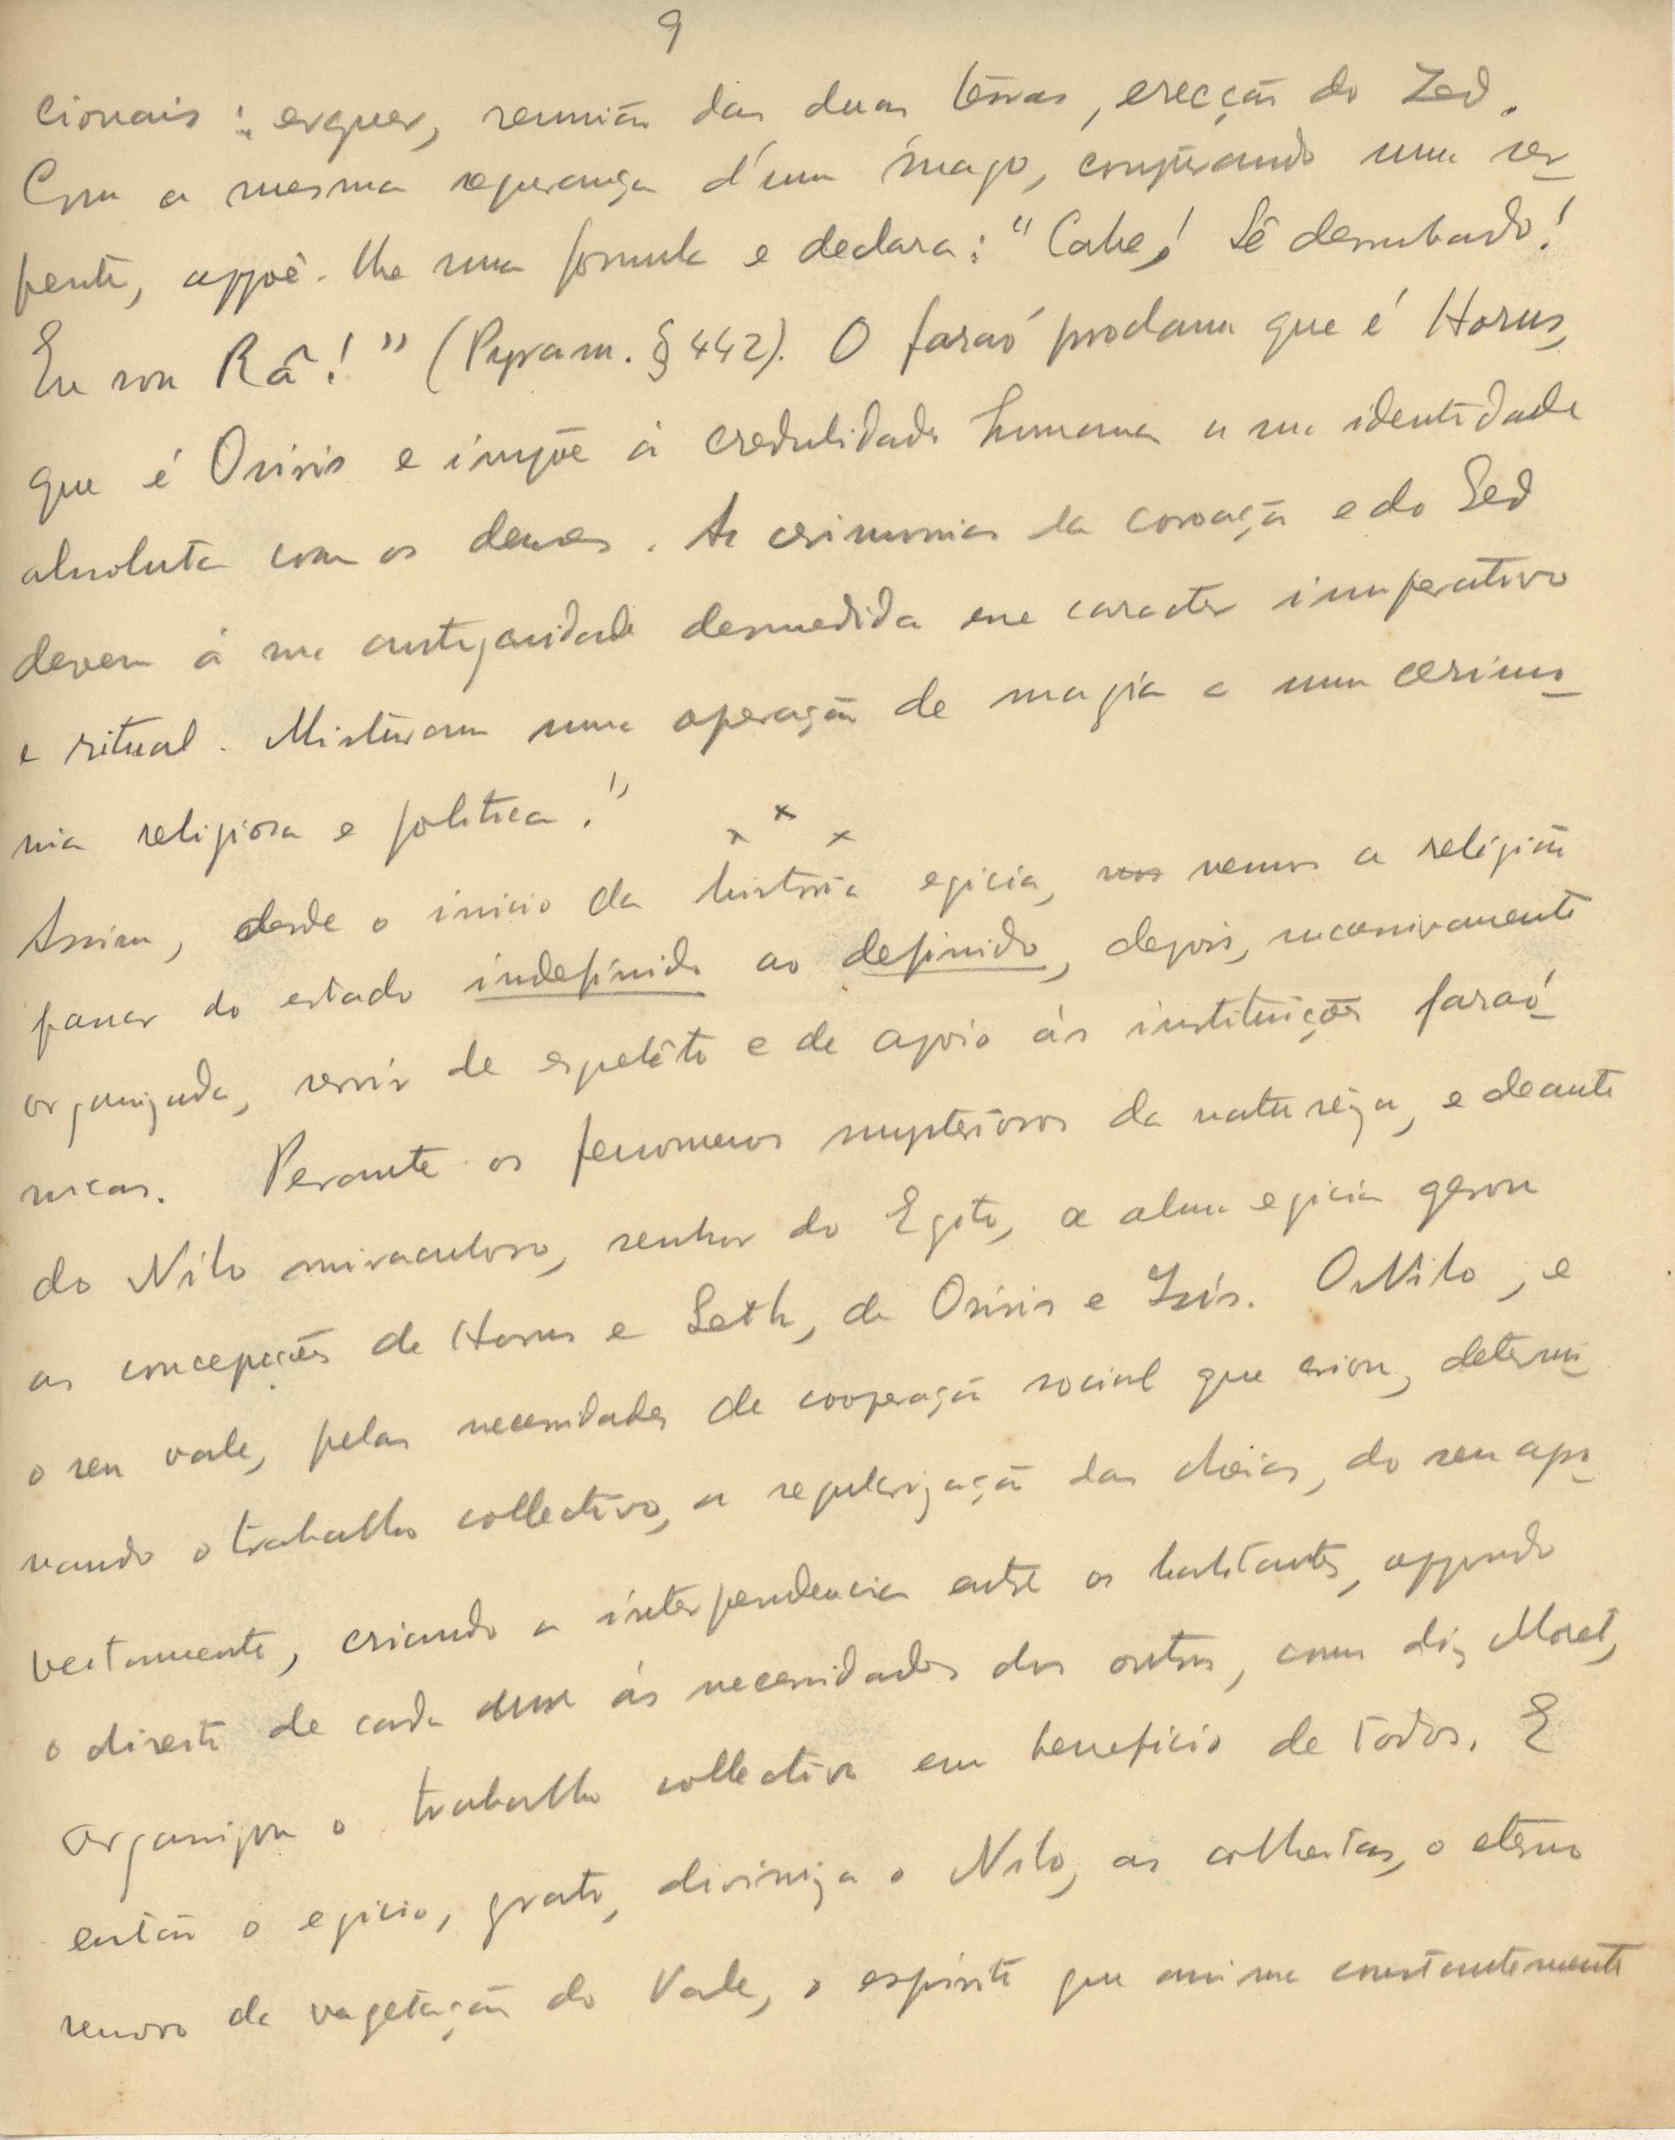 9
cionais : erguer, reunião das duas terras, erecção do Zed.
Com a mesma segurança d'um mago, conjurando uma ser-
pente, appoê-lhe uma formula e declara: "Cahe! Sê derrubado!
Eu sou Râ!" (Pyram. § 442). O faraó proclama que é Horus,
que é Osiris e impõe á credulidade humana a sua identidade
absoluta com os deuses. As cerimonias da coroação e do Sed
devem á sua antiguidade desmedida esse caracter imperativo
e ritual. Misturam uma operação de magia a uma cerimo-
nia religiosa e politica."
x x x
Assim, desde o inicio da historia egicia, vemos a religião
passar do estado indefinido ao definido, depois, sucessivamente
organizada, servir de espelêto e de apoio ás instituições faraó-
nicas. Perante os fenomenos mysteriosos da naturêza, e deante
do Nilo miraculoso, senhor do Egito, a alma egicia gerou
as concepções de Horus e Seth, de Osiris e Isis. O Nilo, e
o seu vale, pelas necessidades de cooperação social que criou, determi-
nando o trabalho collectivo, a regularização das cheias, do seu apro-
veitamento, criando a interpendencia entre os habitantes, appondo
o direito de cada um ás necessidades dos outros, como diz Moret,
organizou o trabalho collectivo em beneficio de todos. E
então o egicio, grato, diviniza o Nilo, as colheitas, o eterno
renovo da vegetação do Vale, o espirito que anima constantemente